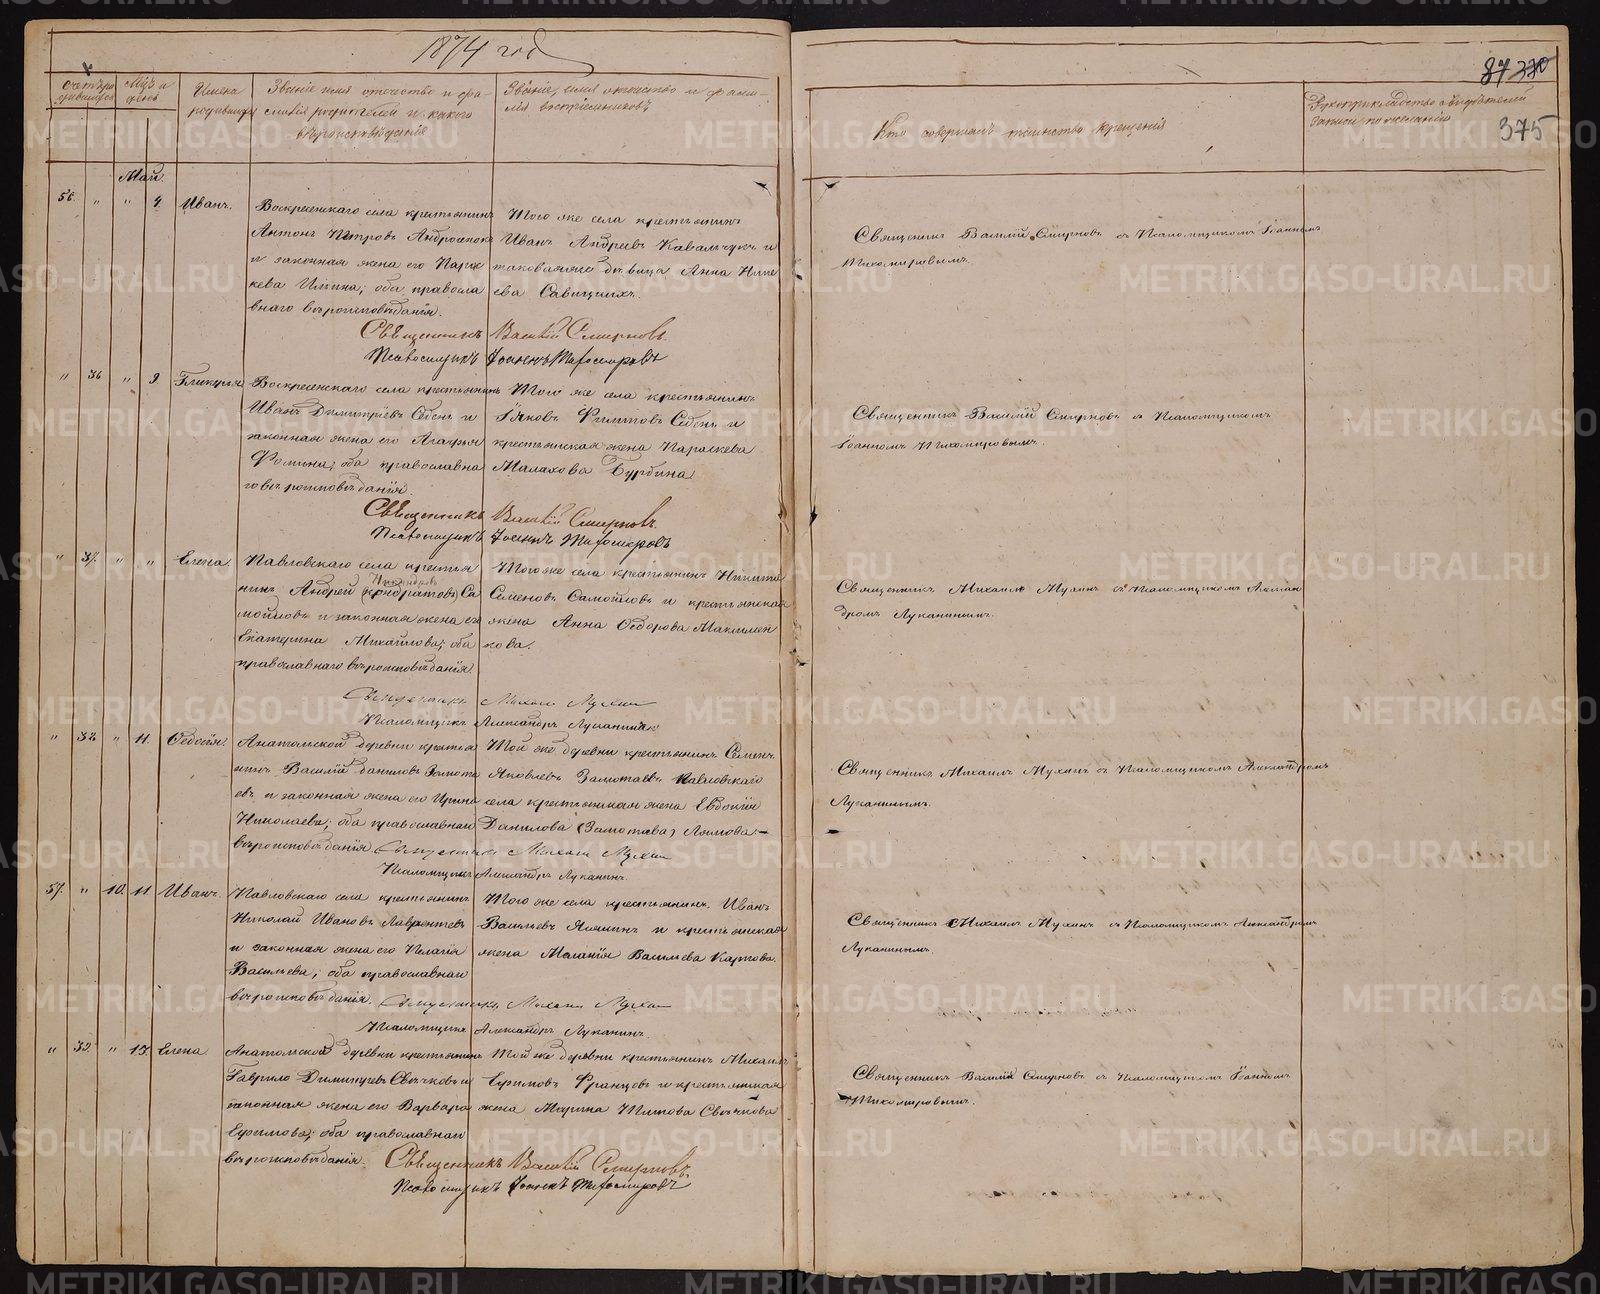 1874 год
87 370
375
Счетъ родившихся
Мѣц и день
Имена родившихся
Званіе имя отчество и фамилія родителей и какого вѣроисповѣданія
Званіе, имя отчество и фамилія воспріемниковъ
Кто совершалъ таинство крещенія
Рукоприкладство свидѣтелей записи по желанію
Май.
56. " " 4. Иванъ.
Воскресенскаго села крестьянинъ
Антонъ Петровъ
и законная жена его Парас
кева Ильина; оба правосла
внаго вѣроисповѣданія.
Того же села крестьянинъ
Иванъ Андреевъ Кавальчукъ и
таковаяже дѣвица Анна
ева Савицкихъ.
Священникъ Василій Смирновъ съ Псаломщикомъ Іоанномъ
Тихомировымъ.
Священникъ Василій Смирновъ.
Псаломщикъ Іоаннъ Тихомировъ
" 36 " 9. Гликерія
Воскресенскаго села крестьянинъ
Иванъ Димитріевъ Седень и
законная жена его Агафья
Фомина; оба православна
го вѣроисповѣданія.
Того же села крестьянинъ
Яковъ Филиповъ Седень и
крестьянская жена Параскева
Малахова Бурбина
Священникъ Василій Смирновъ съ Псаломщикомъ
Іоанномъ Тихомировымъ.
Священникъ Василій Смирновъ.
Псаломщикъ Іоаннъ Тихомировъ
" 37. " " Елена.
Павловскаго села крестья
нинъ Андрей (Кондратовъ) Са
мойловъ и законная жена его
Екатерина Михайлова; оба
православнаго вѣроисповѣданія
Того же села крестьянинъ Никита
Семеновъ Самойловъ и крестьянская
жена Анна Ѳедорова Максимен
кова.
Священникъ Михаилъ Мухинъ съ Псаломщикомъ Алексан
дромъ Луканинымъ.
Священникъ Михаилъ Мухинъ
Псаломщикъ Александръ Луканинъ
" 38 " 11. Ѳедосія
Анатольской деревни крестья
нинъ Василій Даниловъ Замота
евъ и законная жена его Ирина
Николаева; оба православнаго
вѣроисповѣданія
Той же деревни крестьянинъ Семенъ
Яковлевъ Замотаевъ Павловскаго
села крестьянская жена Евдокія
Данилова (Замотаева)
Священникъ Михаилъ Мухинъ съ Псаломщикомъ Александромъ
Луканинымъ.
Священникъ Михаилъ Мухинъ
Псаломщикъ Александръ Луканинъ.
57. " 10. 11. Иванъ.
Павловскаго села крестьянинъ
Николай Ивановъ Лаврентьевъ
и законная жена его Пелагія
Васильева; оба православнаго
вѣроисповѣданія.
Того же села крестьянинъ Иванъ
Васильевъ Ялкинъ и крестьянская
жена Маланія Васильева Карпова.
Священникъ Михаилъ Мухинъ съ Псаломщикомъ Александромъ
Луканинымъ.
Священникъ Михаилъ Мухинъ
Псаломщикъ Александръ Луканинъ.
" 39. " 13. Елена
Анатольской деревни крестьянинъ
Гаврило Димитріевъ Свѣчковъ и
законная жена его Варвара
Ефимова; оба православнаго
вѣроисповѣданія.
Той же деревни крестьянинъ Михаилъ
Ефимовъ Францевъ и крестьянская
жена Марина Титова Свѣчкова
Священникъ Василій Смирновъ съ Псаломщикомъ Іоанномъ
Тихомировымъ.
Священникъ Василій Смирновъ.
Псаломщикъ Іоаннъ Тихомировъ
METRIKI.GASO-URAL.RU